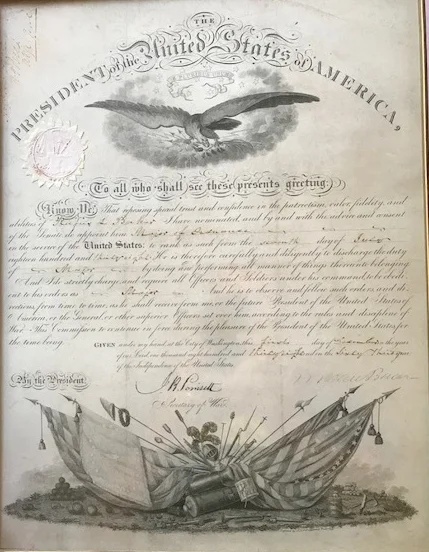 THE
PRESIDENT of the United States of AMERICA,
To all who shall see these presents greeting:
Know Ye, That reposing special trust and confidence in the patriotism, valor, fidelity, and
abilities of I have nominated, and by and with the advice and consent
of the Senate do appoint him Major of Ordnance
in the service of the United States: to rank as such from the seventh day of July
eighteen hundred and thirty eight He is therefore carefully and diligently to discharge the duty
of Major by doing and performing all manner of things thereunto belonging.
And I do strictly charge, and require all Officers and Soldiers under his command to be obedi-
ent to his orders as Major And he is to observe and follow such orders, and di-
rections, from time to time, as he shall receive from me, or the future President of the United States of
America, or the General, or other superior Officers set over him, according to the rules and discipline of
War. This Commission to continue in force during the pleasure of the President of the United States, for
the time being.
GIVEN under my hand, at the City of Washington, this day of in the year
of our Lord one thousand eight hundred and thirty eight and in the Sixty Third year
of the Independence of the United States.
By the President,
J R Poinsett
Secretary of War.